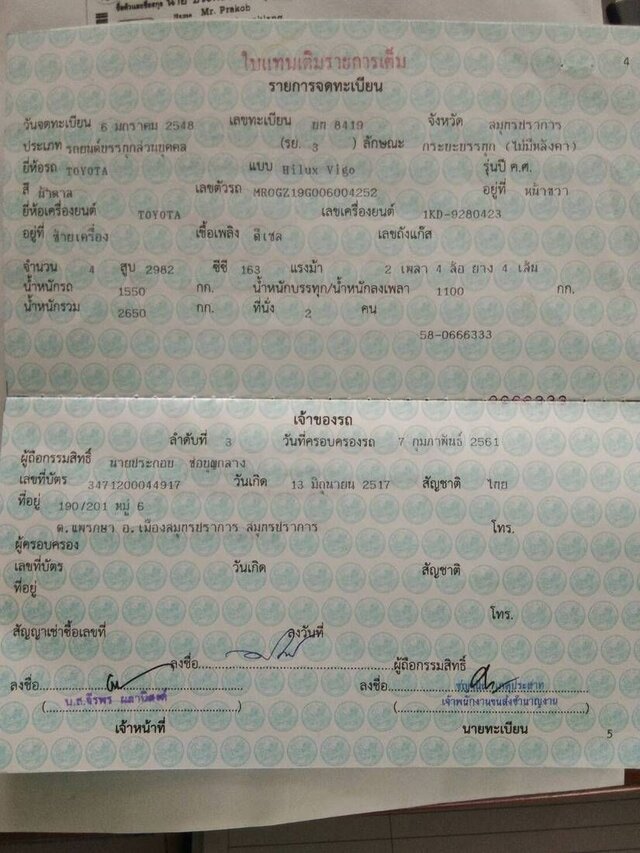 ชื่อตัวและชื่อสกุล นาย
Name Mr. Prakob
ใบแทนเติมรายการเต็ม
4
รายการจดทะเบียน
วันจดทะเบียน 6 มกราคม 2548 เลขทะเบียน 8419 จังหวัด สมุทรปราการ
ประเภท รถยนต์บรรทุกส่วนบุคคล (รย. 3 ) ลักษณะ กระบะบรรทุก (ไม่มีหลังคา)
ยี่ห้อรถ TOYOTA แบบ Hilux Vigo รุ่นปี ค.ศ.
สี น้ำตาล เลขตัวรถ MR0GZ19G006004252 อยู่ที่ หน้าขวา
ยี่ห้อเครื่องยนต์ TOYOTA เลขเครื่องยนต์ 1KD-9280423
อยู่ที่ ซ้ายเครื่อง เชื้อเพลิง ดีเซล เลขถังแก๊ส
จำนวน 4 สูบ 2982 ซีซี 163 แรงม้า 2 เพลา 4 ล้อ ยาง 4 เส้น
น้ำหนักรถ 1550 กก. น้ำหนักบรรทุก/น้ำหนักลงเพลา 1100 กก.
น้ำหนักรวม 2650 กก. ที่นั่ง 2 คน
58-0666333
0666333
เจ้าของรถ
ลำดับที่ 3 วันที่ครอบครองรถ 7 กุมภาพันธ์ 2561
ผู้ถือกรรมสิทธิ์ นายประกอบ
เลขที่บัตร 3471200044917 วันเกิด 13 มิถุนายน 2517 สัญชาติ ไทย
ที่อยู่ 190/201 หมู่ 6
ต.แพรกษา อ.เมืองสมุทรปราการ สมุทรปราการ โทร.
ผู้ครอบครอง
เลขที่บัตร วันเกิด สัญชาติ
ที่อยู่
โทร.
สัญญาเช่าซื้อเลขที่ ลงวันที่
ลงชื่อ ผู้ถือกรรมสิทธิ์
ลงชื่อ ลงชื่อ
เจ้าพนักงานขนส่งชำนาญงาน
เจ้าหน้าที่ นายทะเบียน
5